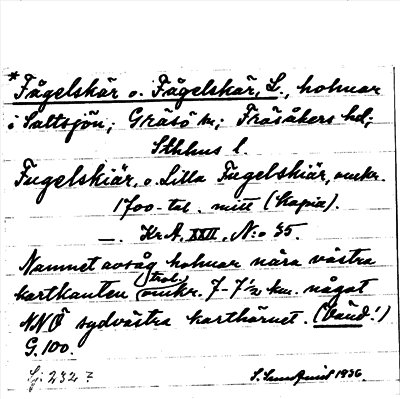 *Fågelskär o. Fågelskär, L., holmar
i Saltsjön; Gräsö sn; Frösåkers hd;
Sthlms l.
Fugelskiär, o. Lilla Fugelskiär, omkr.
1700-tal. mitt (kopia).
—. Kr. A, XXII, N:o 35.
Namnet avsåg holmar nära västra
kartkanten (trol.) omkr. 7-7½ km. något
NNÖ sydvästra karthörnet. (Länd!)
G. 100.
Lj: 232?
S. Lundquist 1936.